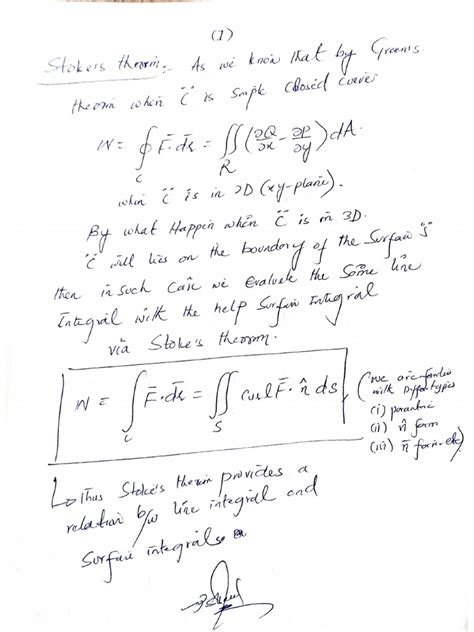 (1)
Stoke's theorem:- As we know that by Green's
theorem when "C" is simple closed curve
W = ∮_C F̄·dr̄ = ∬_R (∂Q/∂x - ∂P/∂y) dA.
when "C" is in 2D (xy-plane).
By what Happen when "C" is in 3D.
"C" will lies on the boundary of the Surface "S"
then in such case we evaluate the same line
Integral with the help Surface Integral
via Stoke's theorem.
W = ∫_C F̄·dr̄ = ∬_S curl F̄ · n̂ ds, (we are familiar
with Differ types
(i) parametric
(ii) n̂ form
(iii) n̄ form etc)
Thus Stoke's theorem provides a
relation b/w line integral and
Surface integrals